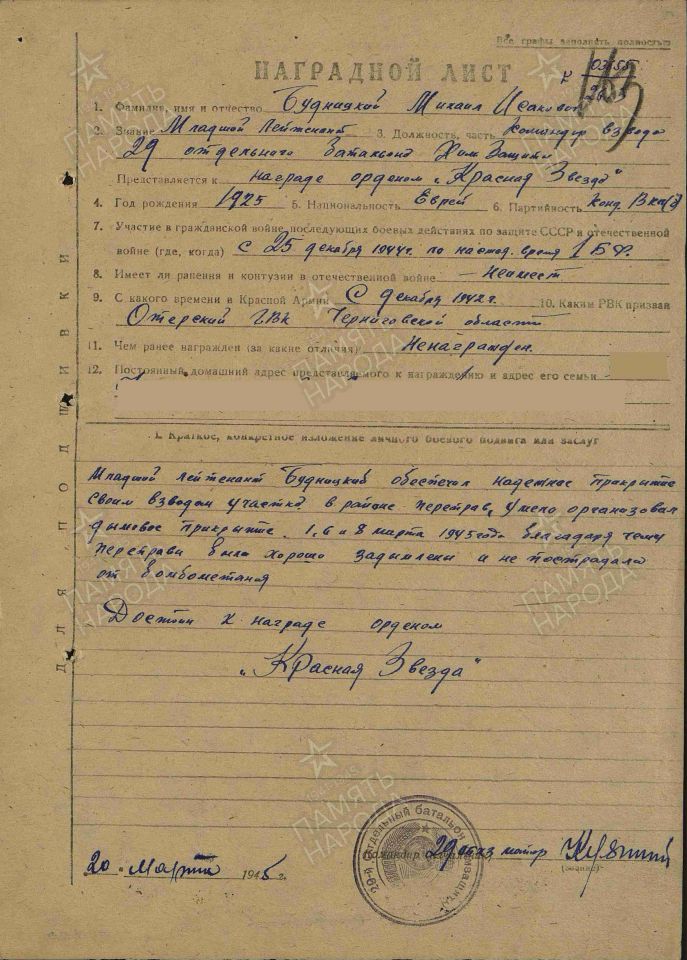 Все графы заполнять полностью
НАГРАДНОЙ ЛИСТ
163
1. Фамилия, имя и отчество Будницкий Михаил Исакович
2. Звание Младшой Лейтенант 3. Должность, часть командир взвода
29 отдельного батальона Хим Защиты
Представляется к награде орденом „Красная Звезда"
4. Год рождения 1925 5. Национальность Еврей 6. Партийность Конд. ВКП(б)
7. Участие в гражданской войне, последующих боевых действиях по защите СССР и отечественной
войне (где, когда) с 25 декабря 1944г. по настоящ. время 1 БФ.
8. Имеет ли ранения и контузии в отечественной войне - неимеет
9. С какого времени в Красной Армии С декабря 1942г. 10. Каким РВК призван
Отерский ГВК Черниговской области
11. Чем ранее награжден (за какие отличия) Ненагражден.
12. Постоянный домашний адрес представляемого к награждению и адрес его семьи
I. Краткое, конкретное изложение личного боевого подвига или заслуг
Младшой лейтенант Будницкий обеспечил надежное прикрытие
своим взводом участка в районе переправ, умело организовал
дымовое прикрытие. 1, 6 и 8 марта 1945 года благодаря чему
переправы были хорошо задымлены и не пострадали
от бомбометания
Достоин к награде орденом
„Красная Звезда"
Командир 29 обхз майор
(звание)
20 Марта 1945 г.
29-й отдельный батальон химзащиты
ДЛЯ ПОДШИВКИ
ПАМЯТЬ НАРОДА